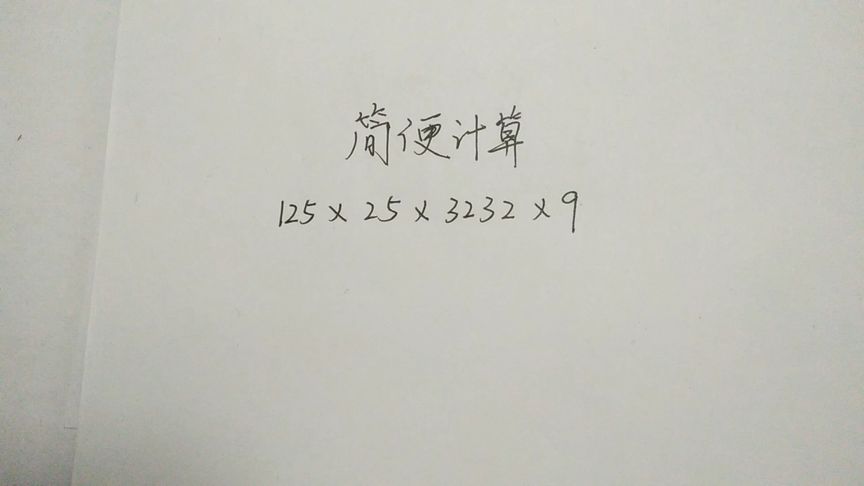 简便计算
125×25×3232×9